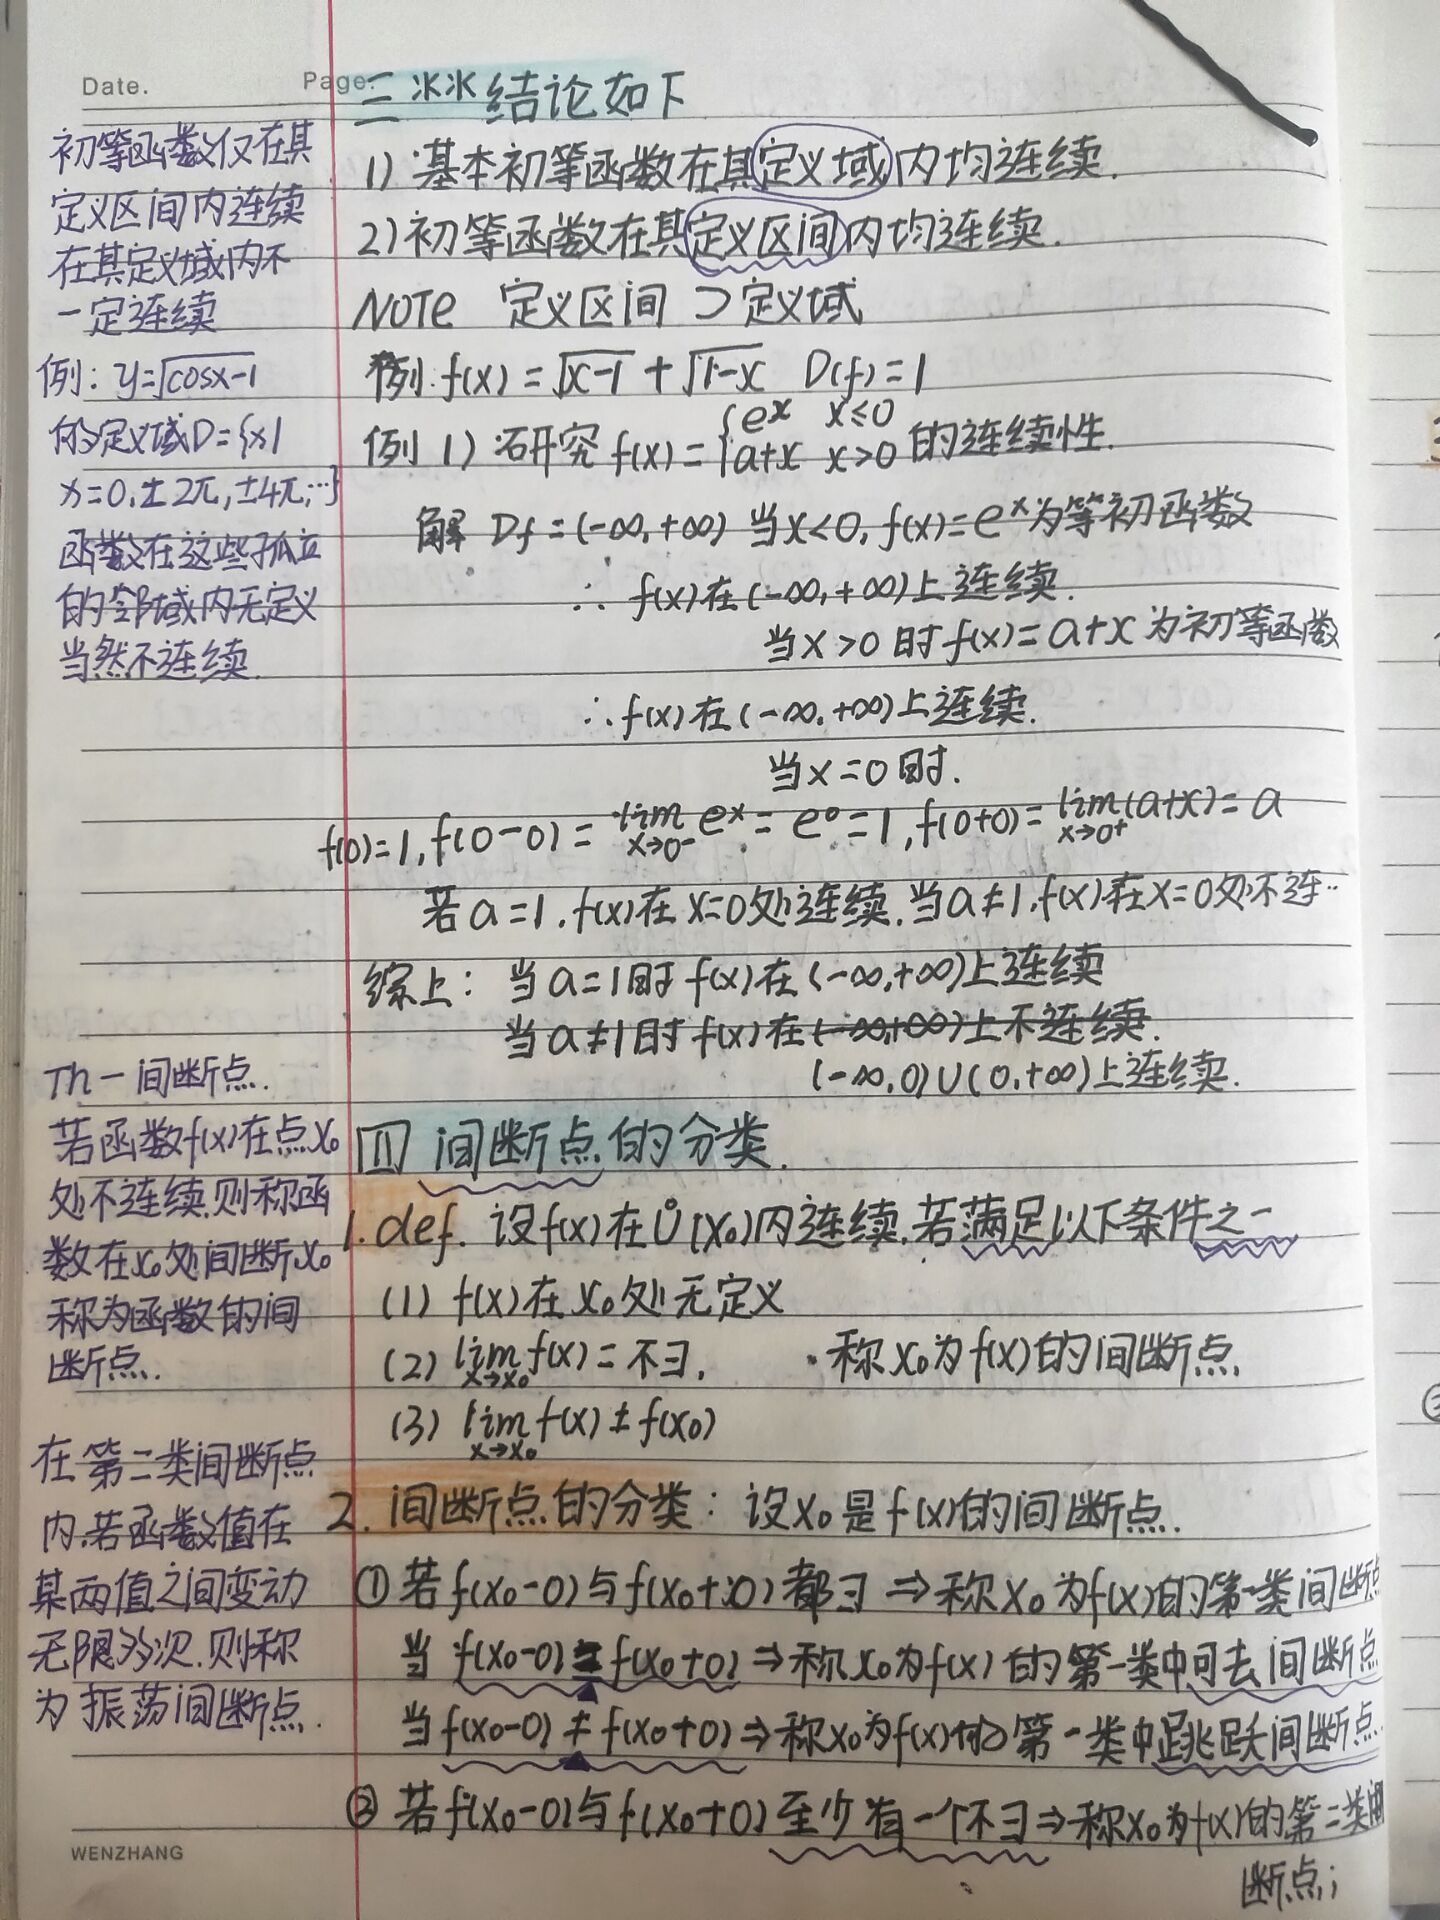 Date.
Page.
三 ※※ 结论如下
1) 基本初等函数在其定义域内均连续.
2) 初等函数在其定义区间内均连续.
NOTE 定义区间 ⊃ 定义域
例: f(x) = √x-1 + √1-x D(f) = 1
例 1) 研究 f(x) = { e^x x≤0
a+x x>0 的连续性.
解 Df = (-∞, +∞) 当x<0, f(x) = e^x 为等初函数
∴ f(x)在(-∞, +∞)上连续.
当x>0时 f(x) = a+x 为初等函数
∴ f(x)在(-∞, +∞)上连续.
当x=0时.
f(0)=1, f(0-0) = lim x→0⁻ e^x = e^0 = 1, f(0+0) = lim x→0⁺ (a+x) = a
若a=1, f(x)在x=0处连续. 当a≠1, f(x)在x=0处不连..
综上: 当a=1时 f(x)在(-∞, +∞)上连续
当a≠1时 f(x)在(-∞, +∞)上不连续.
(-∞, 0)∪(0, +∞)上连续.
四 间断点的分类.
1. def. 设f(x)在Ů(x₀)内连续, 若满足以下条件之一
(1) f(x)在x₀处无定义
(2) lim x→x₀ f(x) = 不∃, · 称x₀为f(x)的间断点.
(3) lim x→x₀ f(x) ≠ f(x₀)
2. 间断点的分类: 设x₀是f(x)的间断点.
① 若f(x₀-0)与f(x₀+0)都∃ ⇒ 称x₀为f(x)的第一类间断点
当 f(x₀-0) = f(x₀+0) ⇒ 称x₀为f(x)的第一类中可去间断点
当 f(x₀-0) ≠ f(x₀+0) ⇒ 称x₀为f(x)的第一类中跳跃间断点.
② 若f(x₀-0)与f(x₀+0)至少有一个不∃ ⇒ 称x₀为f(x)的第二类间
断点;
初等函数仅在其
定义区间内连续
在其定义域内不
一定连续
例: y=√cosx-1
的定义域D={x|
x=0,±2π,±4π,…}
函数在这些孤立
的邻域内无定义
当然不连续.
Th一间断点.
若函数f(x)在点x₀
处不连续,则称函
数在x₀处间断,x₀
称为函数的间
断点.
在第二类间断点
内,若函数值在
某两值之间变动
无限多次,则称
为振荡间断点.
WENZHANG